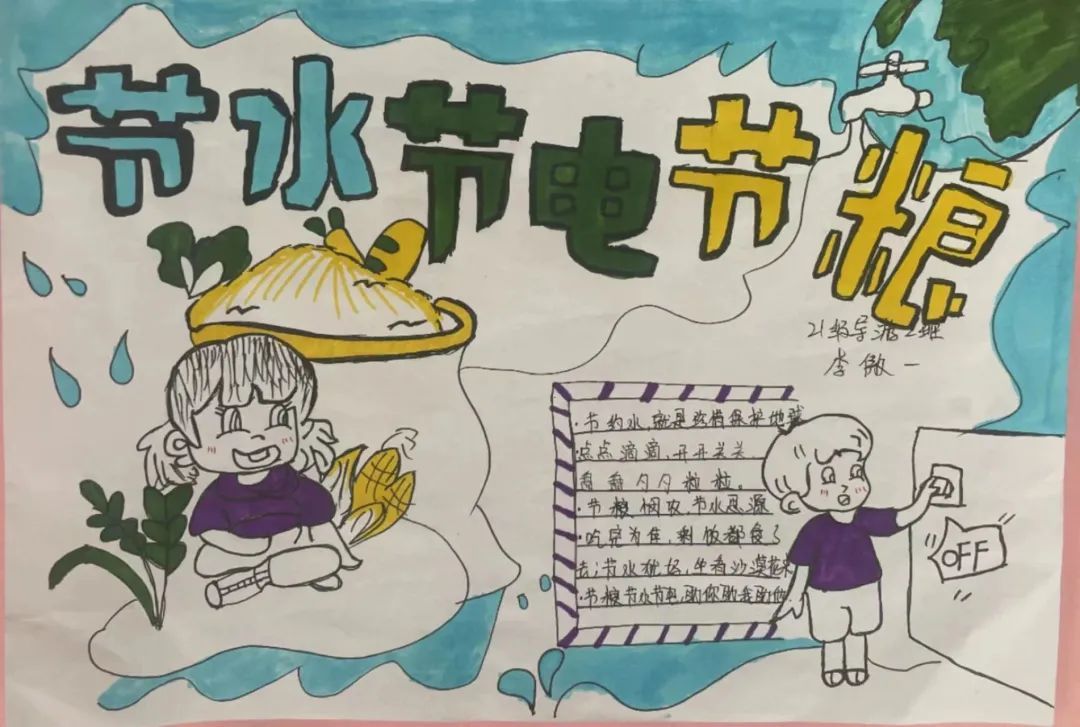 节水节电节粮
21级导游2班
李微一
·节约水,就是珍惜保护地球
点点滴滴,开开关关,
朝朝夕夕粒粒。
·节粮悯农,节水思源
·吃完为佳,剩饭都
去;节水桃好,坐看沙漠花来
·节粮节水节电,助你助我助他.
OFF